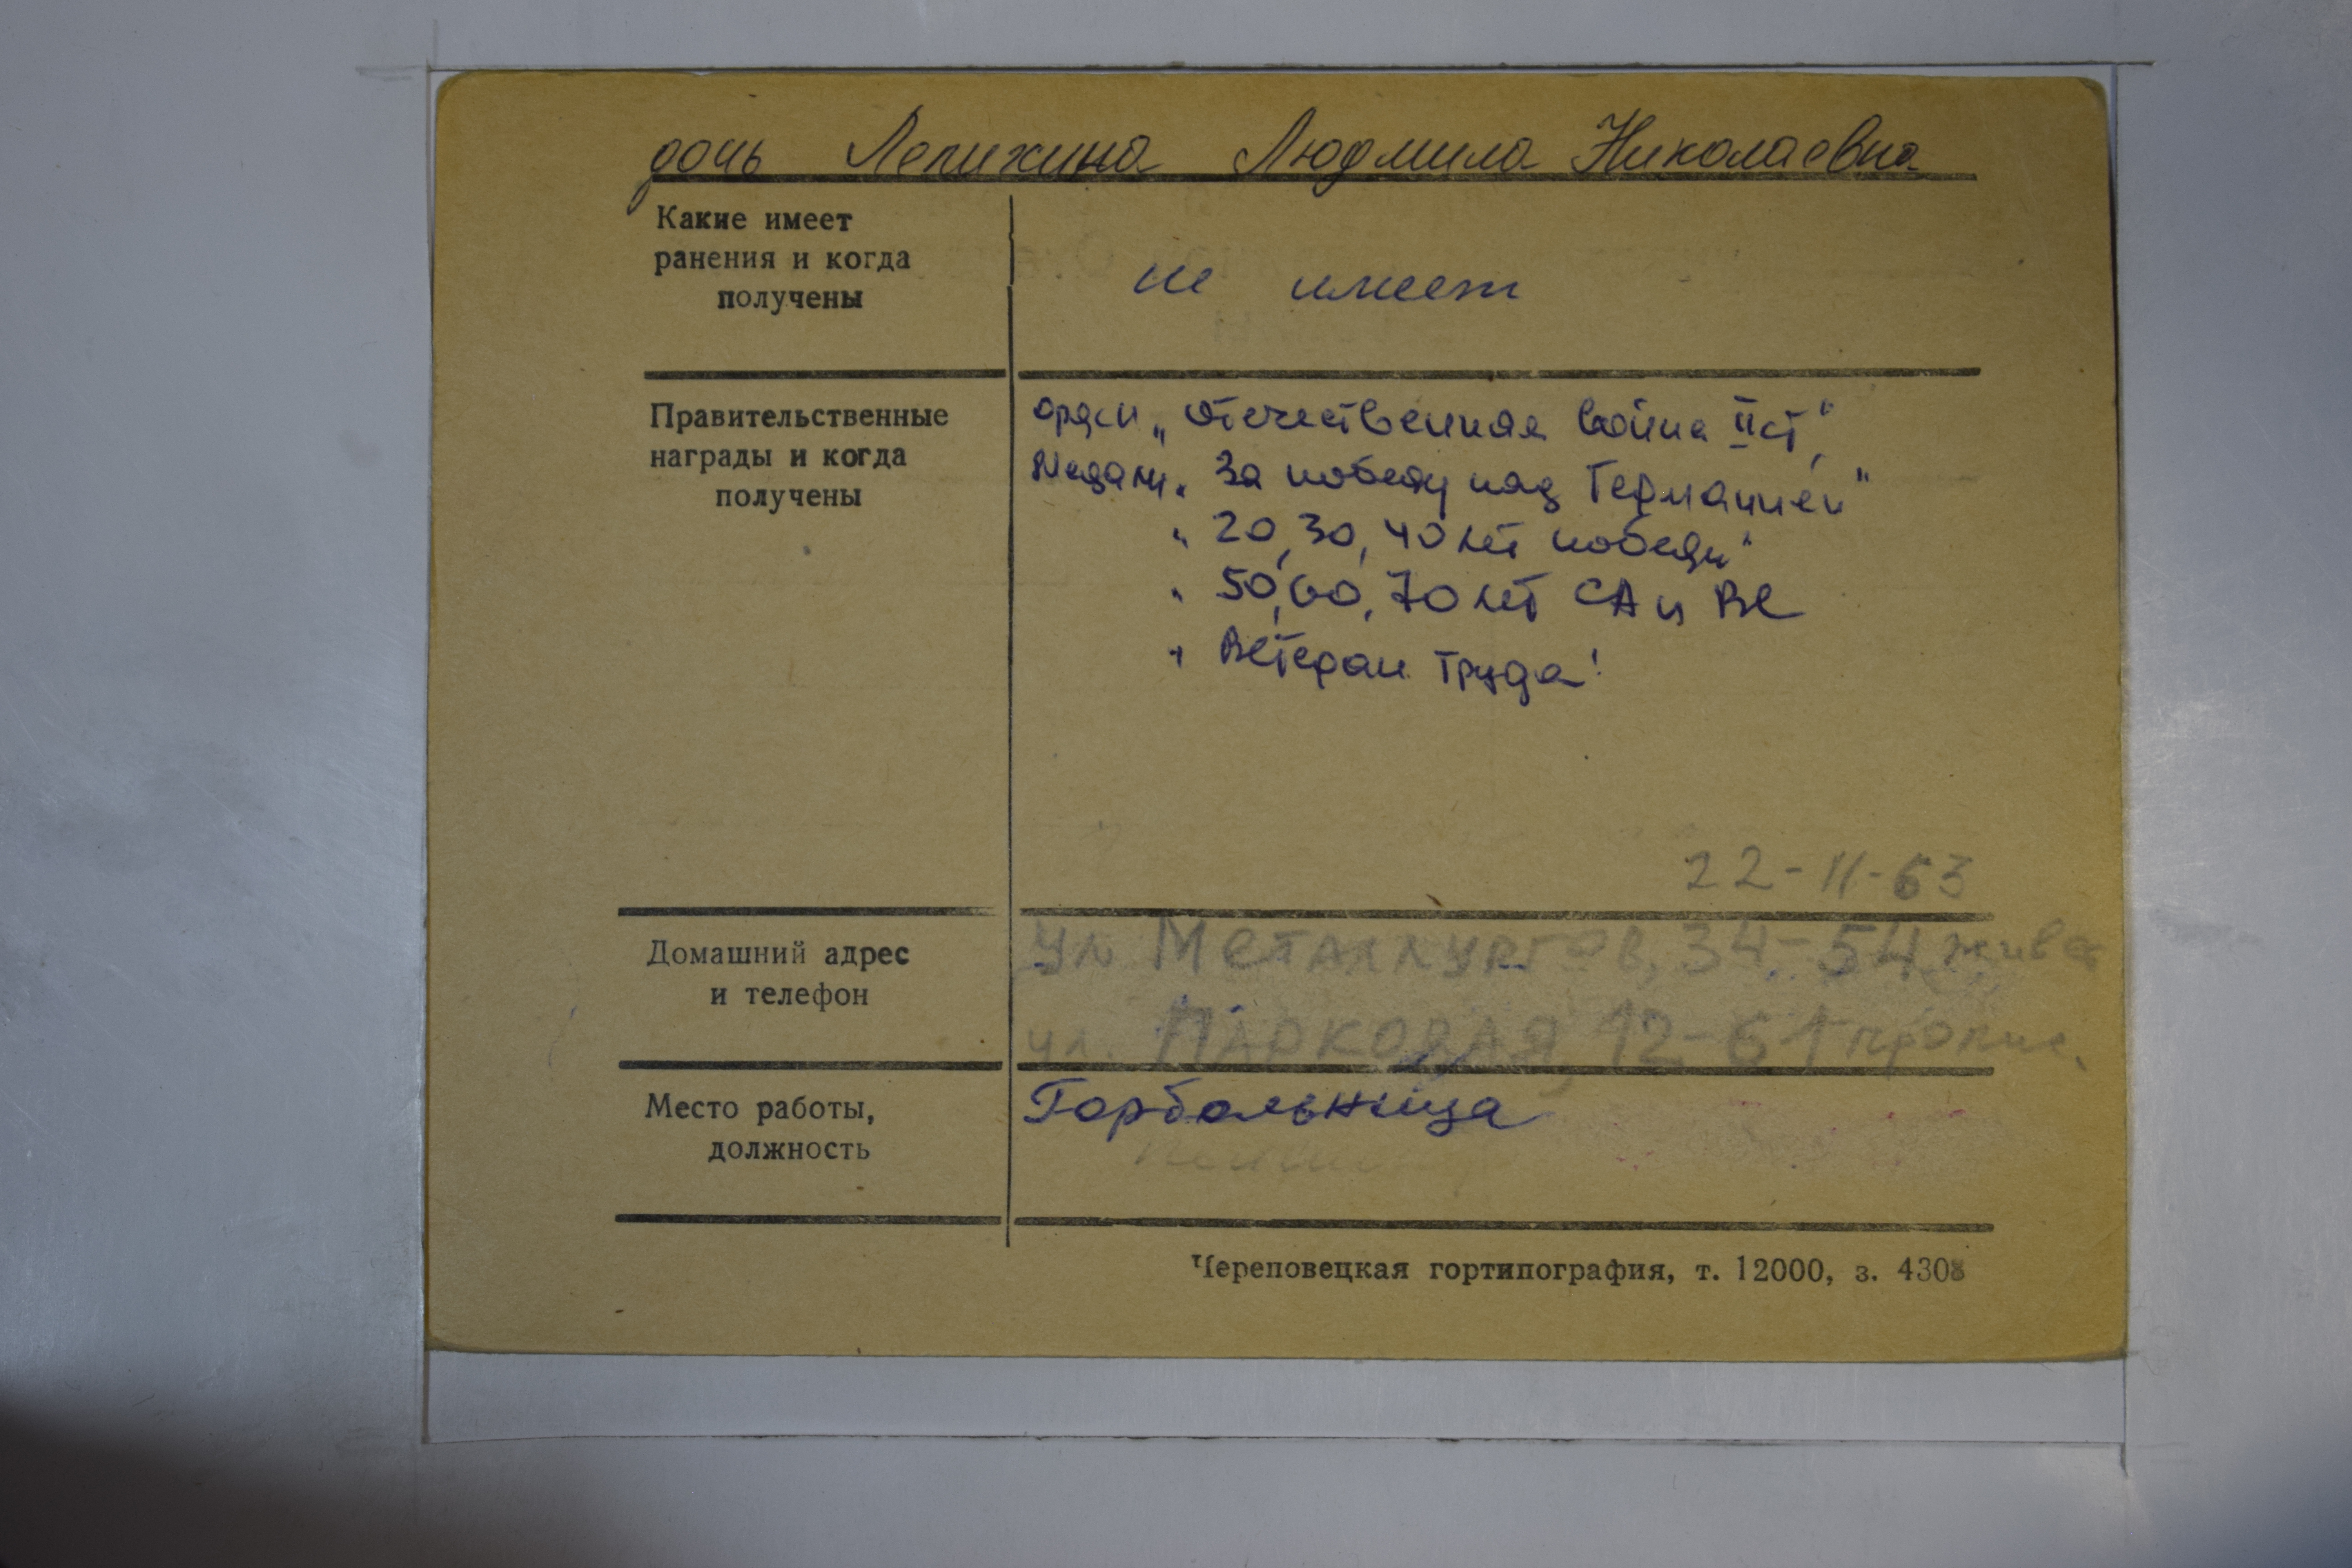 дочь Лепихина Людмила Николаевна
Какие имеет
ранения и когда
получены
не имеет
Правительственные
награды и когда
получены
орден „Отечественная война II ст."
Медали „За победу над Германией"
" 20, 30, 40 лет победы"
" 50, 60, 70 лет СА и ВС
" Ветеран труда"
22-11-63
Домашний адрес
и телефон
ул Металлургов, 34-54 живет
ул. Парковая, 12-61 пропис.
Место работы,
должность
Горбольница
Череповецкая гортипография, т. 12000, з. 4308